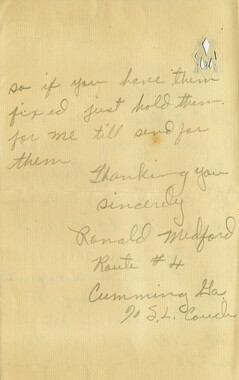 so if you have them
fixed just hold them
for me till send for
them
Thanking you
sincerely
Ronald Medford
Route #4
Cumming Ga
% S.L. Couch